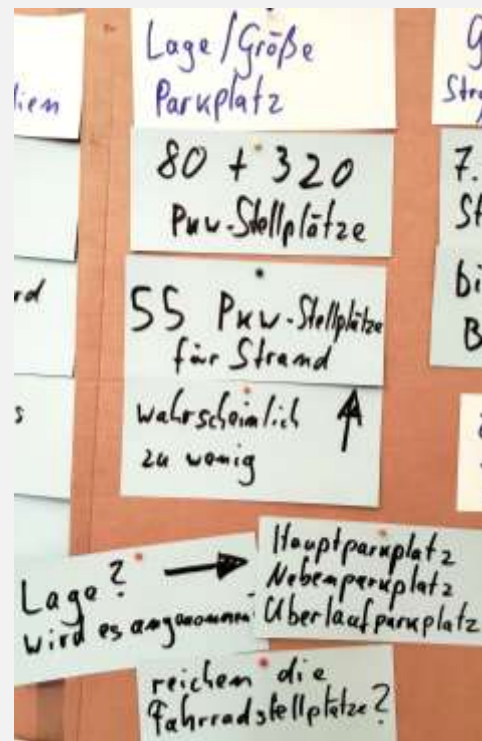 Lage/Größe
Parkplatz
80 + 320
Pkw-Stellplätze
55 Pkw-Stellplätze
für Strand
wahrscheinlich
zu wenig
Lage?
wird es angenommen
Hauptparkplatz
Nebenparkplatz
Überlaufparkplatz
reichen die
Fahrradstellplätze?